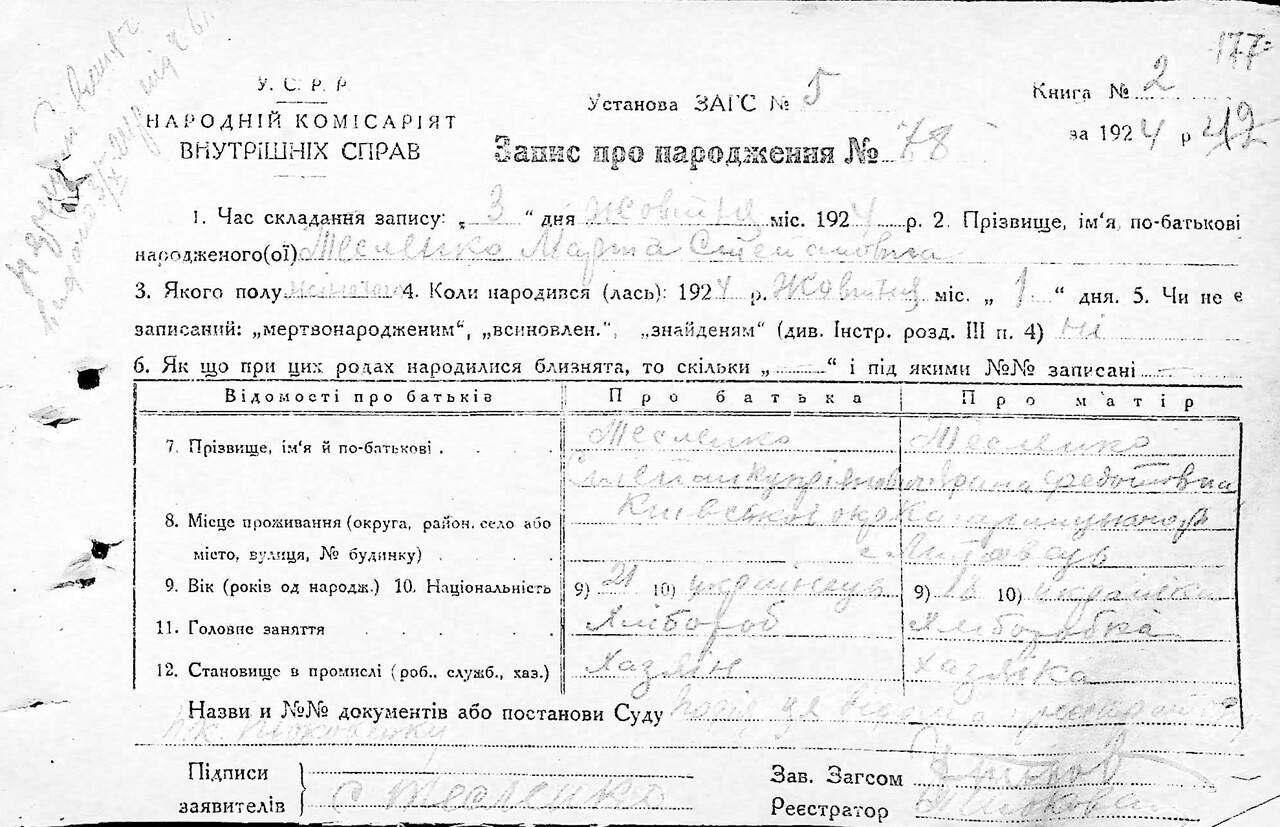 177
У. С. Р. Р.
НАРОДНІЙ КОМІСАРІЯТ
ВНУТРІШНІХ СПРАВ
Установа ЗАГС № 5
Книга № 2
за 1924 р 42
Запис про народження № 78
1. Час складання запису: „ 3 “ дня Жовтня міс. 1924 р. 2. Прізвище, ім‘я, по-батькові
народженого(ої) Тесленко Марта Степановна
3. Якого полу 4. Коли народився (лась): 1924 р. Жовтня міс. „ 1 “ дня. 5. Чи не є
записаний: „мертвонародженим“, „всиновлен.“, „знайденям“ (див. Інстр. розд. III п. 4) ні
6. Як що при цих родах народилися близнята, то скільки „ “ і під якими №№ записані
Відомості про батьків Про батька Про матір
7. Прізвище, ім‘я й по-батькові Тесленко Тесленко
Степан Федотовна
8. Місце проживання (округа, район, село або Київської окр
місто, вулиця, № будинку) с
9. Вік (років од народж.) 10. Національність 9) 21 10) українець 9) 18 10) українка
11. Головне заняття Хлібороб Хліборобка
12. Становище в промислі (роб., служб., хаз.) Хазяїн Хазяйка
Назви и №№ документів або постанови Суду
Підписи
заявителів С Тесленко
Зав. Загсом
Реєстратор